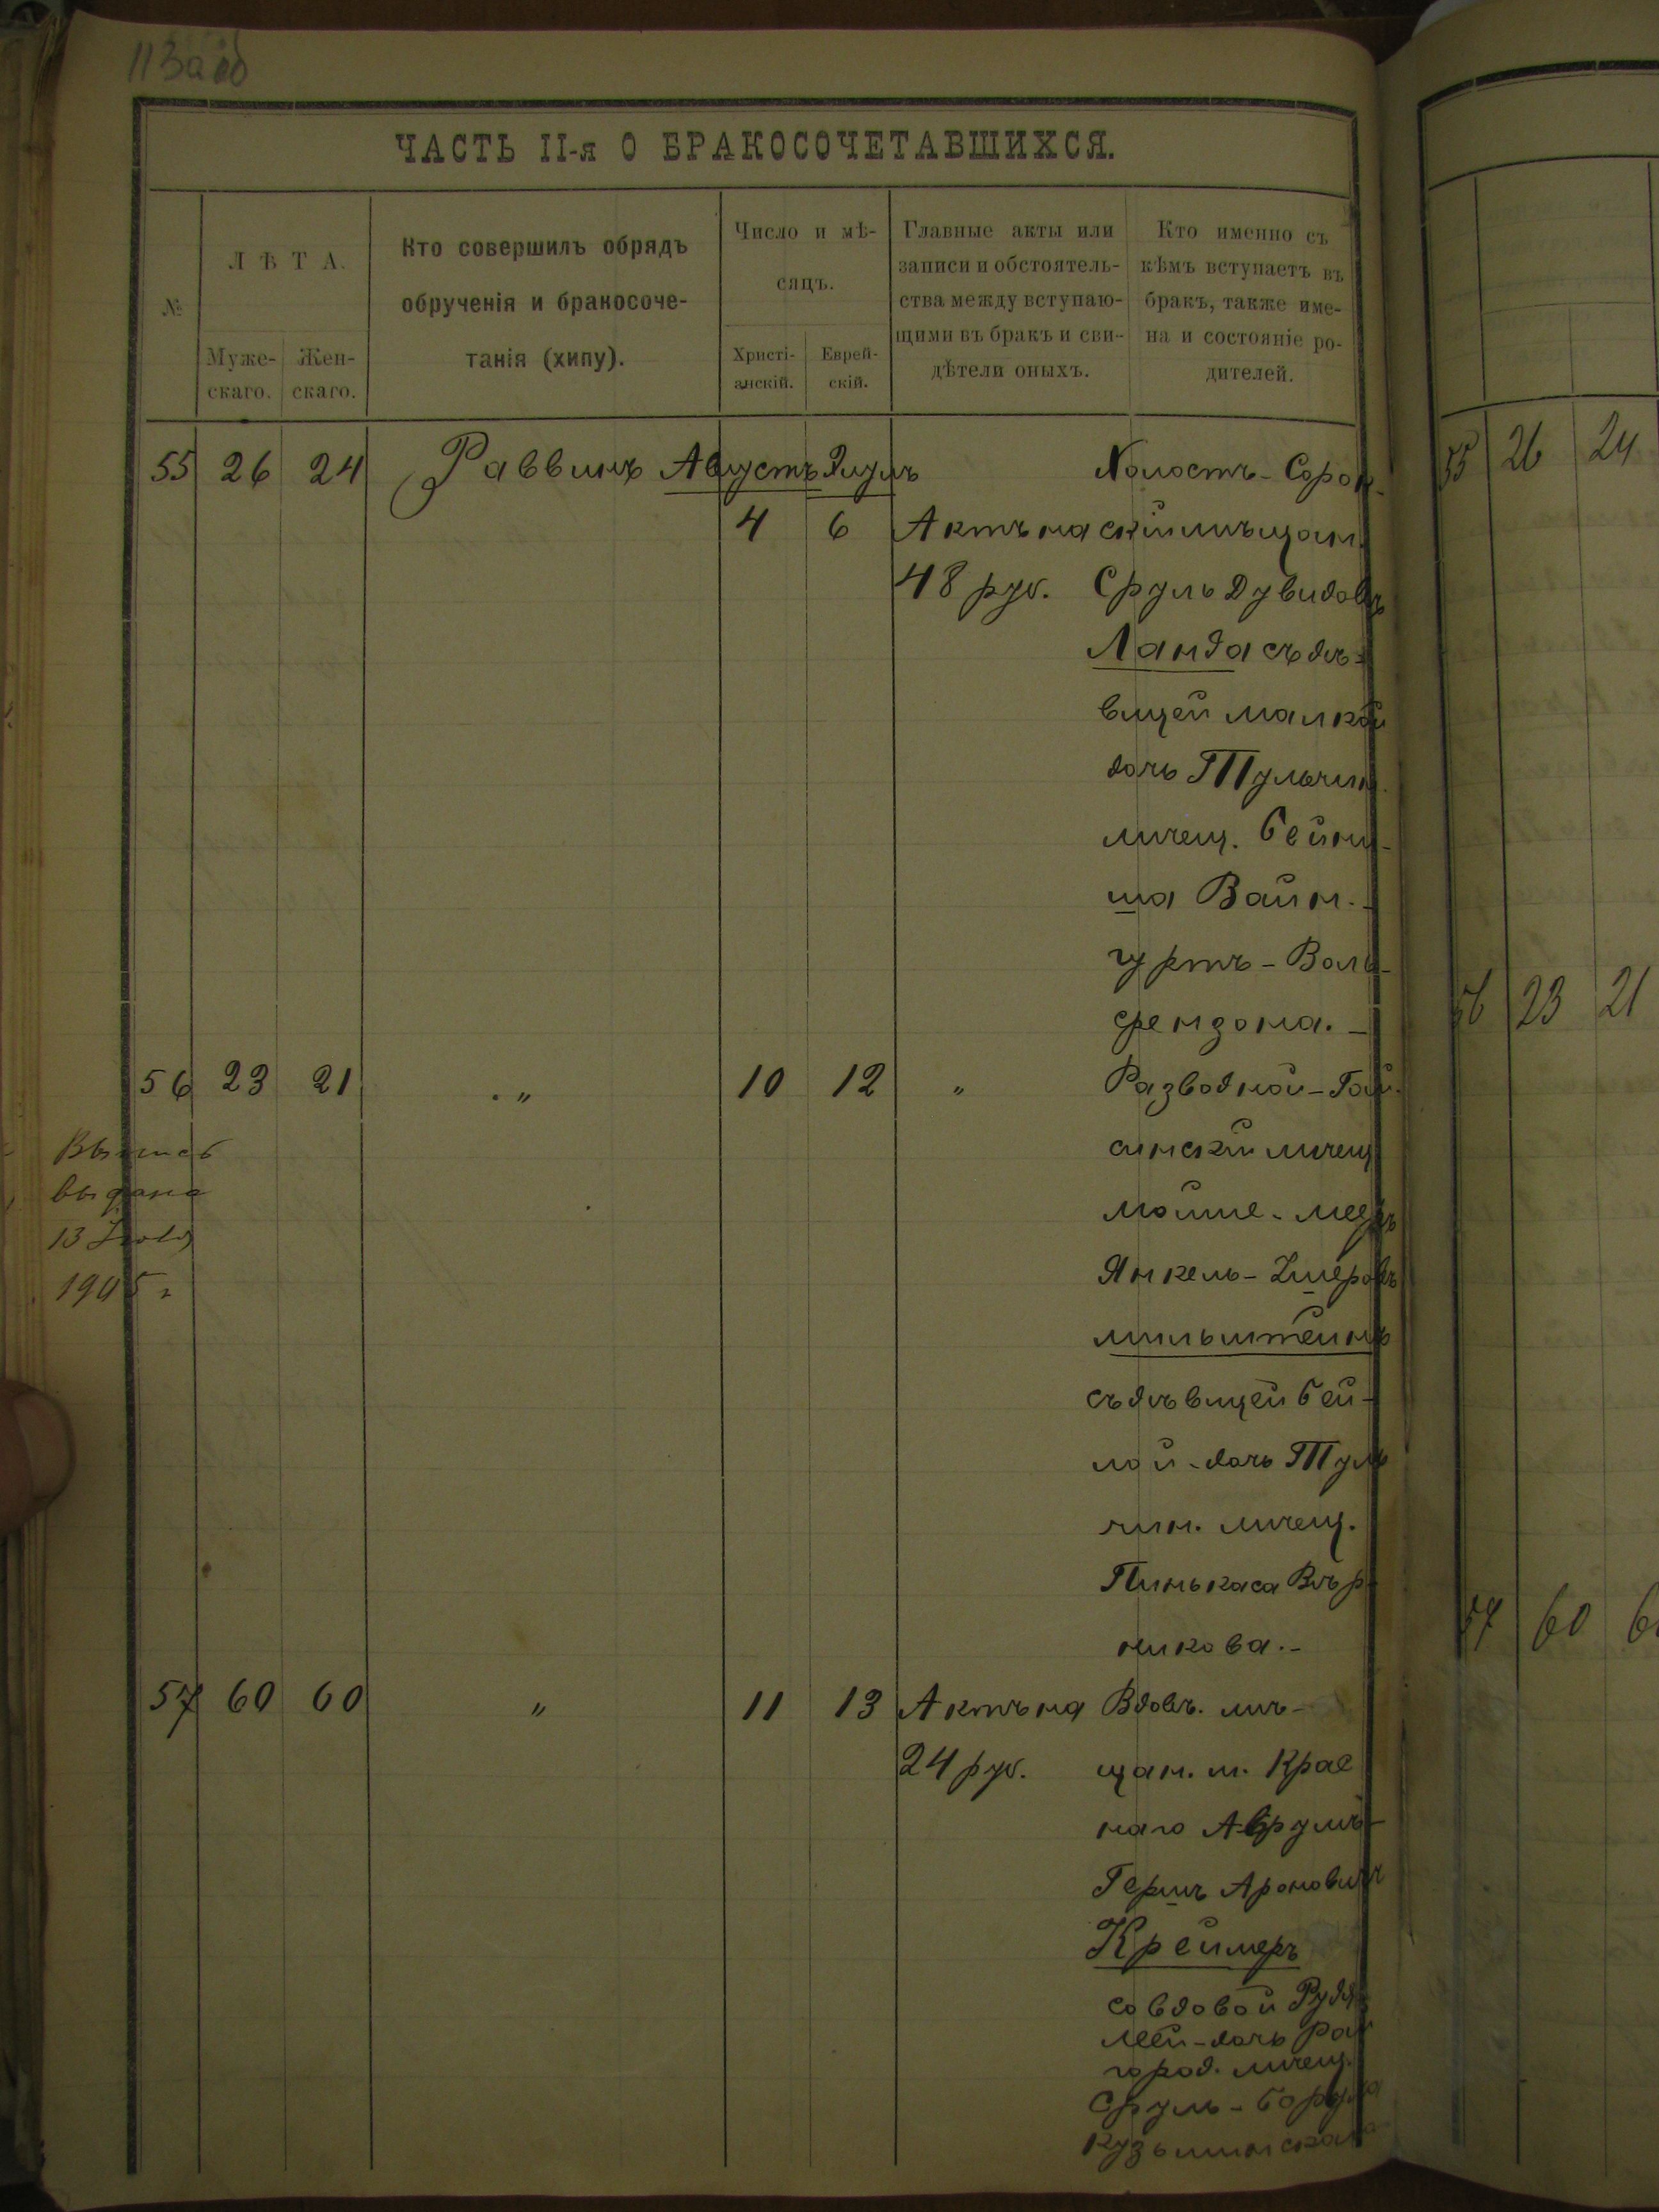 113а об
ЧАСТЬ II-я О БРАКОСОЧЕТАВШИХСЯ.
№
ЛѢТА.
Муже-
скаго.
Жен-
скаго.
Кто совершилъ обрядъ
обрученія и бракосоче-
танія (хипу).
Число и мѣ-
сяцъ.
Христі-
анскій.
Еврей-
скій.
Главные акты или
записи и обстоятель-
ства между вступаю-
щими въ бракъ и сви-
дѣтели оныхъ.
Кто именно съ
кѣмъ вступаетъ въ
бракъ, также име-
на и состояніе ро-
дителей.
55 26 24 Раввинъ Августъ Элулъ Холостъ-Сорок-
4 6 Актъ на скій мѣщан.
48 руб. Сруль Дувидовъ
Ланда съ дѣ-
вицей Малкой
дочь Тульчин.
мѣщ. Бейни-
ша Вайн-
гуртъ-Воль-
фензона.-
56 23 21 " 10 12 " Разводной-Гай-
синскій мѣщ.
Мойше-Мееръ
Янкель-Хмеровъ
Мильштейнъ
съ дѣвицей Бей-
лой-дочь Туль
чин. мѣщ.
Пинькаса Вѣр
никова.-
Выпись
выдана
13 Іюля
1905 г
57 60 60 " 11 13 Актъ на Вдовъ. мѣ-
24 руб. щан. м. Крас
наго Аврумъ-
Гершъ Ароновичъ
Креймеръ
со вдовой
Леей-дочь
город. мѣщ.
Сруль-Боруха
Кузьминскаго
55 26 24
56 23 21
57 60